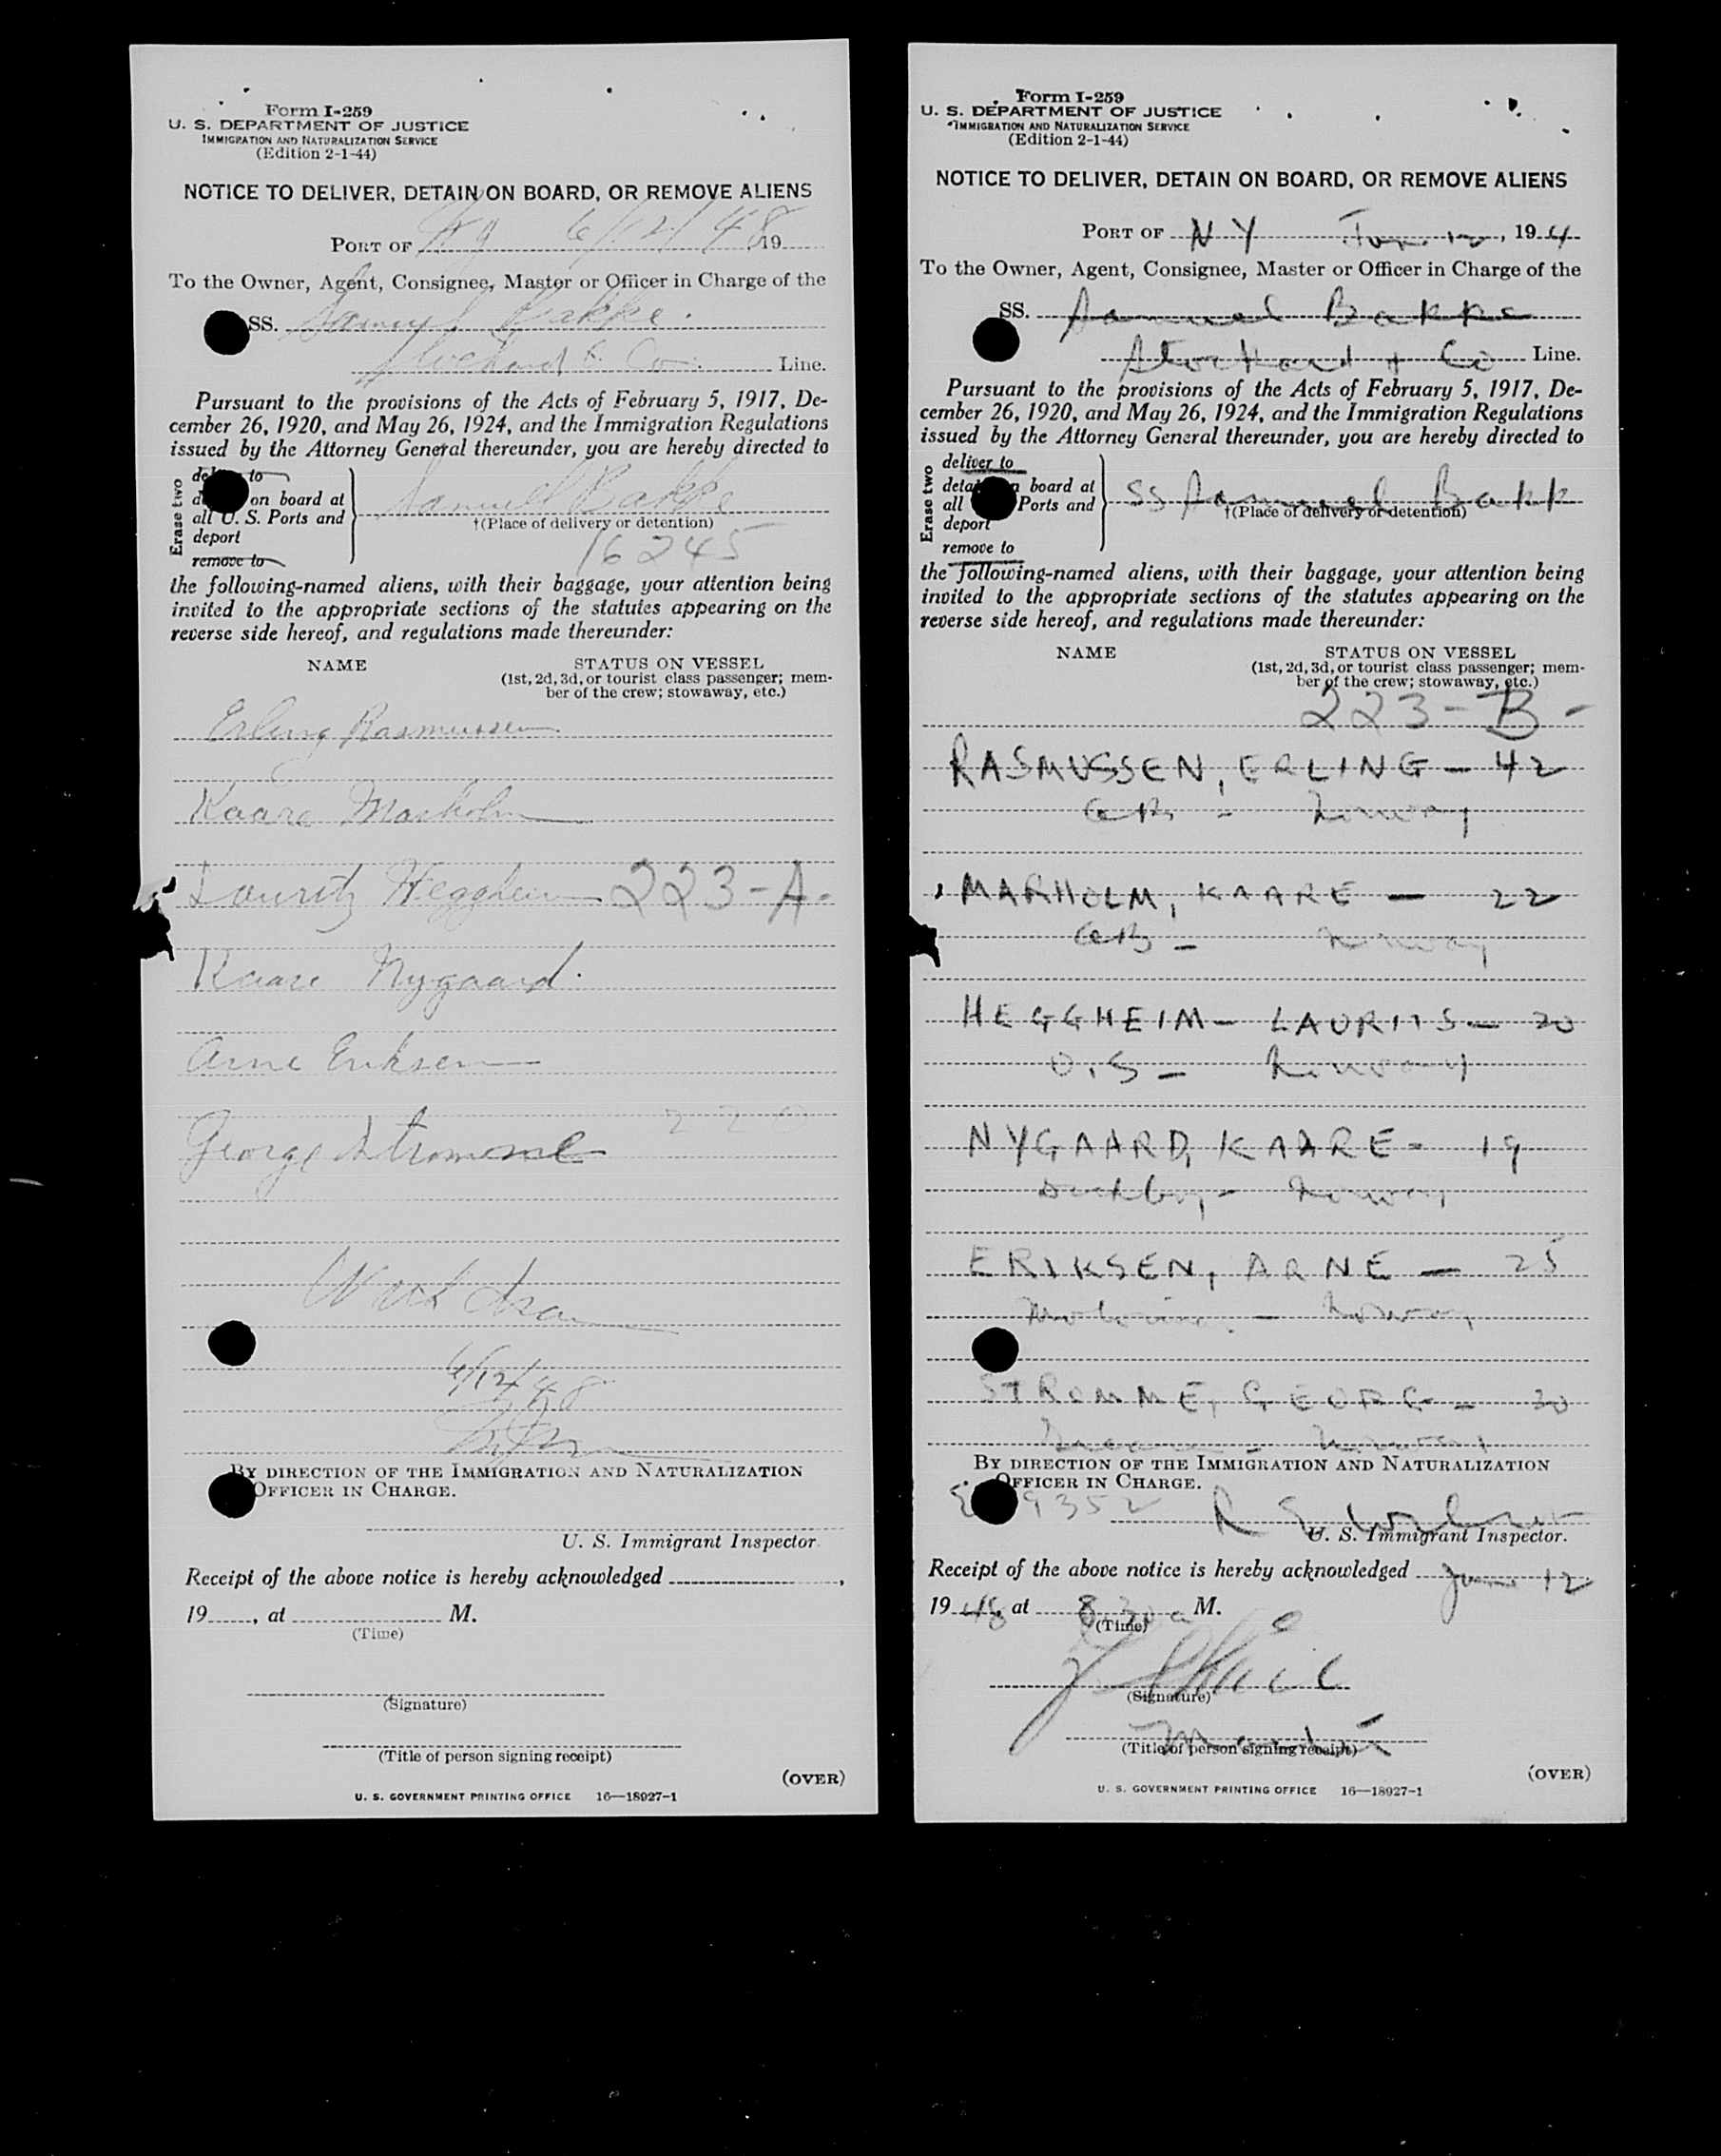 Form I-259
U. S. DEPARTMENT OF JUSTICE
IMMIGRATION AND NATURALIZATION SERVICE
(Edition 2-1-44)
NOTICE TO DELIVER, DETAIN ON BOARD, OR REMOVE ALIENS
PORT OF NY 6/12/48 19
To the Owner, Agent, Consignee, Master or Officer in Charge of the
SS. Samuel Bakke.
Stockard & Co. Line.
Pursuant to the provisions of the Acts of February 5, 1917, De-
cember 26, 1920, and May 26, 1924, and the Immigration Regulations
issued by the Attorney General thereunder, you are hereby directed to
Erase two
to
on board at
all U. S. Ports and
deport
remove to
Samuel Bakke
†(Place of delivery or detention)
16245
the following-named aliens, with their baggage, your attention being
invited to the appropriate sections of the statutes appearing on the
reverse side hereof, and regulations made thereunder:
NAME STATUS ON VESSEL
(1st, 2d, 3d, or tourist class passenger; mem-
ber of the crew; stowaway, etc.)
Erling Rasmussen
Kaare Marholm
Lauritz Heggheim 223-A-
Kaare Nygaard
Arne Eriksen
George Stromme 220
6/12/48
BY DIRECTION OF THE IMMIGRATION AND NATURALIZATION
OFFICER IN CHARGE.
U. S. Immigrant Inspector.
Receipt of the above notice is hereby acknowledged ,
19 , at M.
(Time)
(Signature)
(Title of person signing receipt)
(OVER)
U. S. GOVERNMENT PRINTING OFFICE 16—18927-1
Form I-259
U. S. DEPARTMENT OF JUSTICE
IMMIGRATION AND NATURALIZATION SERVICE
(Edition 2-1-44)
NOTICE TO DELIVER, DETAIN ON BOARD, OR REMOVE ALIENS
PORT OF NY Jun. 12, 194
To the Owner, Agent, Consignee, Master or Officer in Charge of the
SS. Samuel Bakke
Stockard + Co Line.
Pursuant to the provisions of the Acts of February 5, 1917, De-
cember 26, 1920, and May 26, 1924, and the Immigration Regulations
issued by the Attorney General thereunder, you are hereby directed to
Erase two
deliver to
board at
all Ports and
deport
remove to
SS Samuel Bakk
†(Place of delivery or detention)
the following-named aliens, with their baggage, your attention being
invited to the appropriate sections of the statutes appearing on the
reverse side hereof, and regulations made thereunder:
NAME STATUS ON VESSEL
(1st, 2d, 3d, or tourist class passenger; mem-
ber of the crew; stowaway, etc.)
223-B-
RASMUSSEN, ERLING - 42
AB - Norway
MARHOLM, KAARE - 22
AB - Norway
HEGGHEIM - LAURITS - 20
O.S - Norway
NYGAARD, KAARE - 19
Deckboy - Norway
ERIKSEN, ARNE - 25
- Norway
STROMME, GEORG - 30
- Norway
BY DIRECTION OF THE IMMIGRATION AND NATURALIZATION
OFFICER IN CHARGE.
9352
U. S. Immigrant Inspector.
Receipt of the above notice is hereby acknowledged June 12
1948, at 8.30 a M.
(Time)
(Signature)
(Title of person signing receipt)
(OVER)
U. S. GOVERNMENT PRINTING OFFICE 16—18927-1